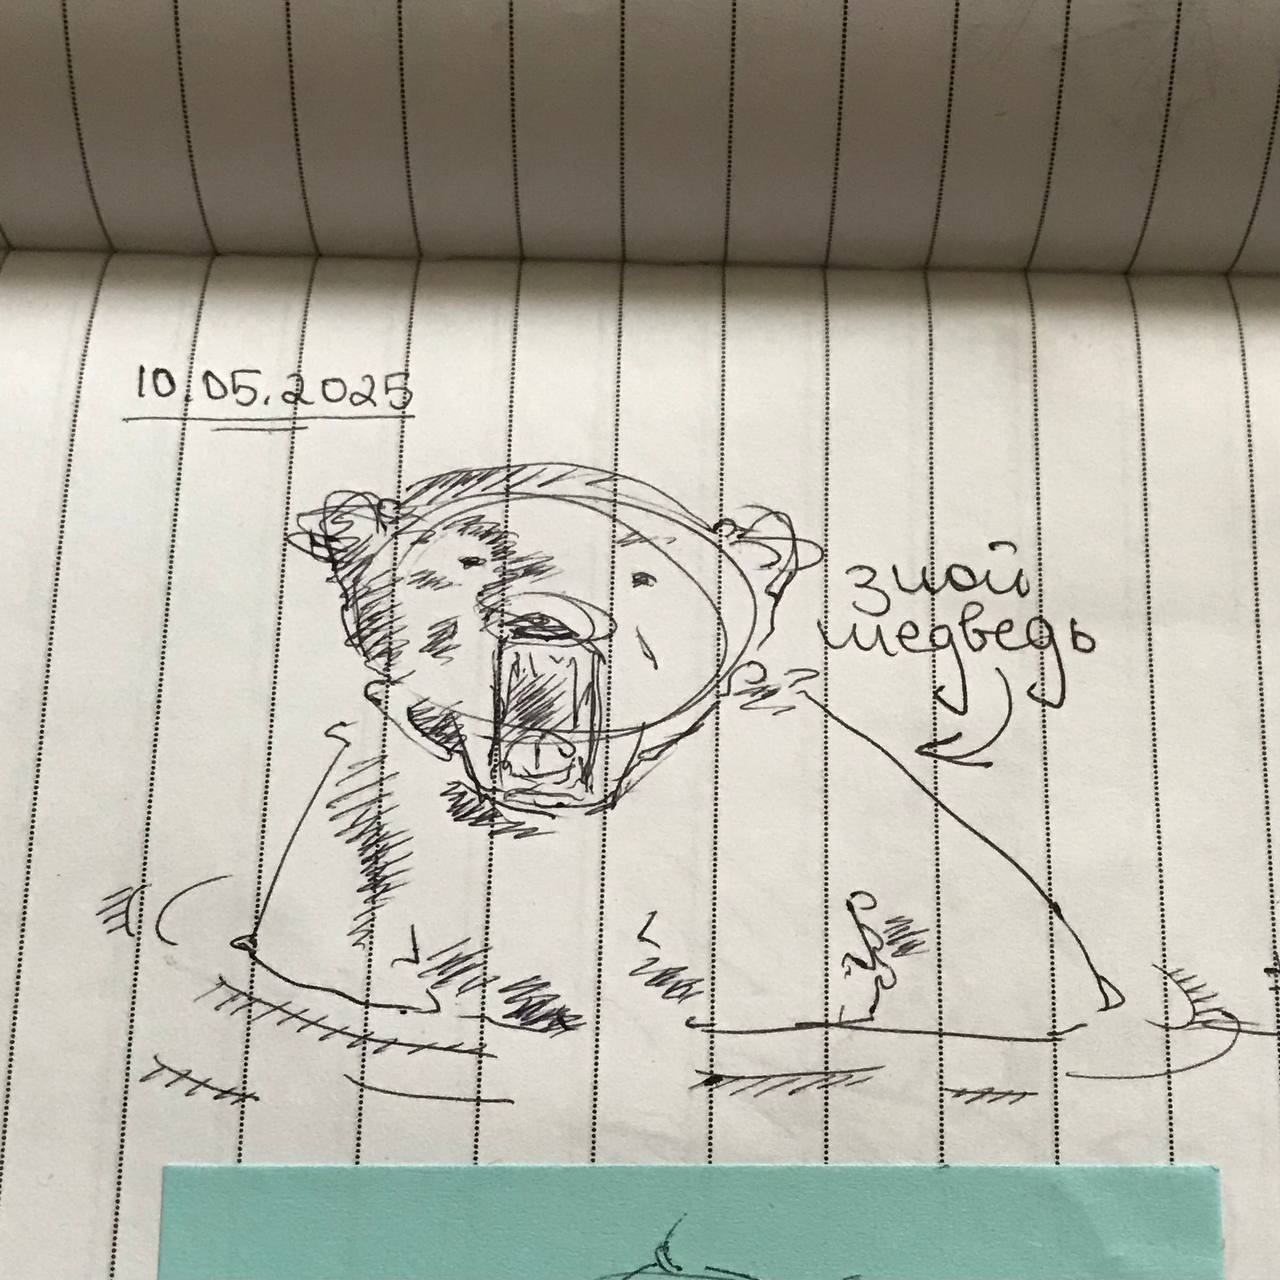 10.05.2025
зной
медведь